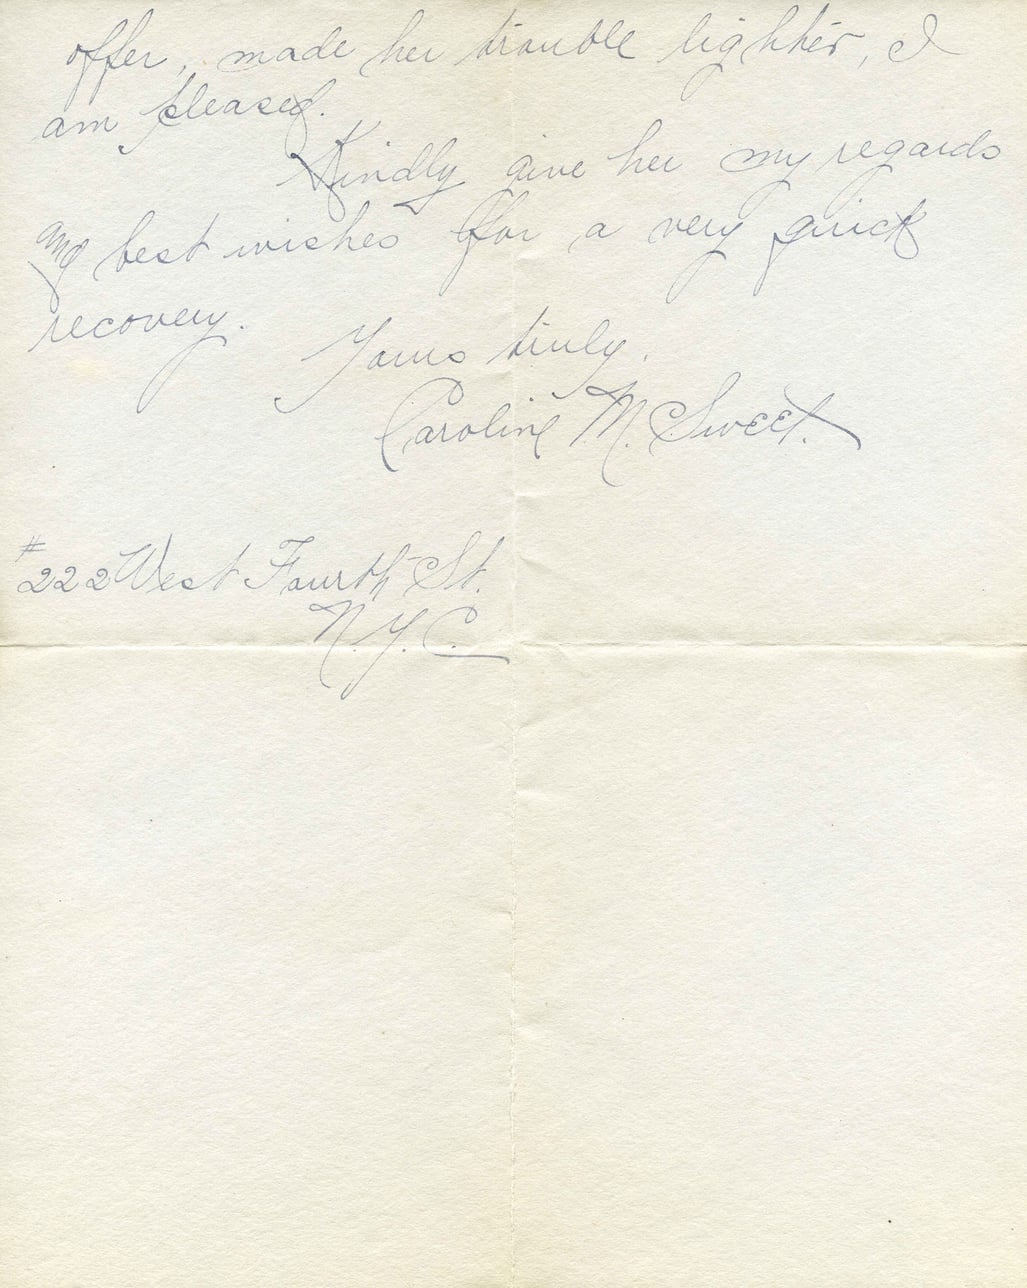 offer, made her trouble lighter, I
am pleased.
Kindly give her my regards
and best wishes for a very quick
recovery.
Yours truly.
Caroline M. Sweet.
#222 West Fourth St.
N.Y.C.